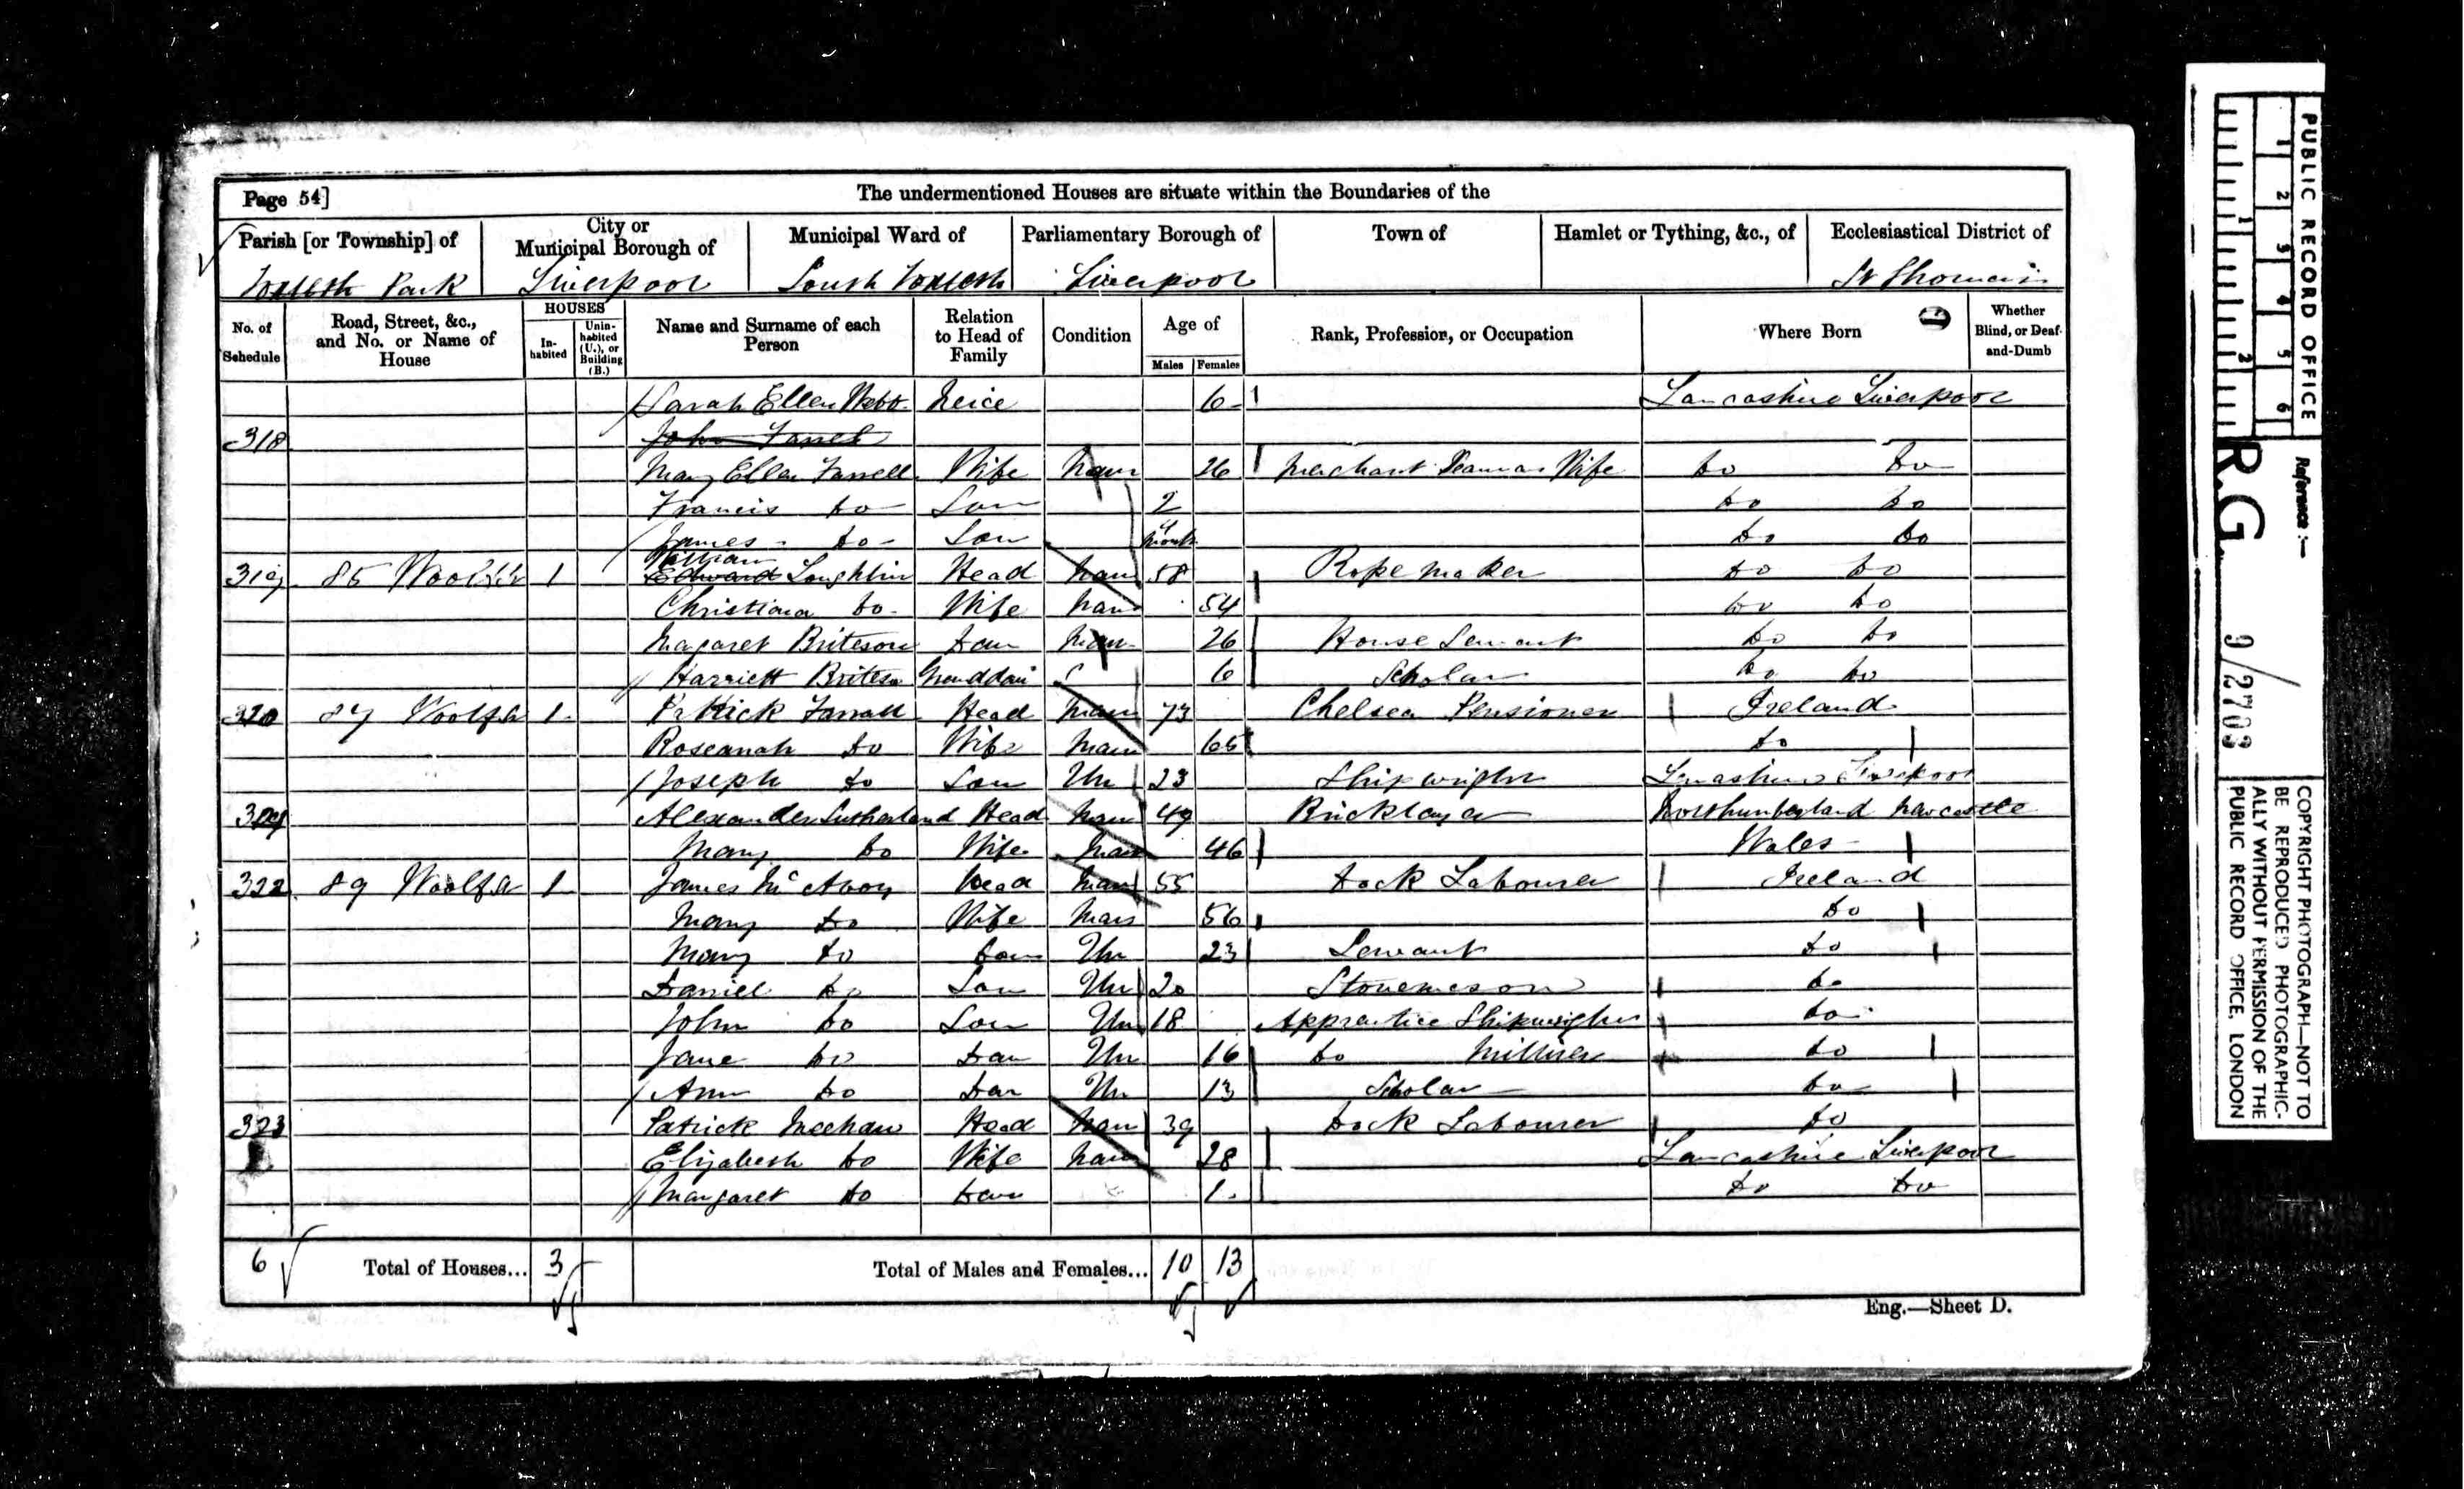 Page 54]
The undermentioned Houses are situate within the Boundaries of the
Parish [or Township] of
City or Municipal Borough of
Municipal Ward of
Parliamentary Borough of
Town of
Hamlet or Tything, &c., of
Ecclesiastical District of
Toxteth Park Liverpool South Toxteth Liverpool St Thomas's
No. of Schedule
Road, Street, &c., and No. or Name of House
HOUSES
In-habited
Unin-habited (U.), or Building (B.)
Name and Surname of each Person
Relation to Head of Family
Condition
Age of
Males Females
Rank, Profession, or Occupation
Where Born
Whether Blind, or Deaf-and-Dumb
Sarah Ellen Webb Neice 6 Lancashire Liverpool
318 John Farrell
Mary Ellen Farrell Wife Marr 26 Merchant Seaman Wife do do
Francis do Son 2 do do
James do Son Month do do
319 85 Woolfe 1 William Edward Loughlin Head Marr 58 Rope Maker do do
Christiana do Wife Marr 54 do do
Magaret Briteson Dau Marr 26 House Servant do do
Harriett Briteso Granddau 6 Scholar do do
320 87 1 Patrick Farrall Head Marr 73 Chelsea Pensioner Ireland
Roseanah do Wife Marr 66 do
Joseph do Son Un 23 Shipwright Lancashire Liverpool
321 Alexander Sutherland Head Marr 49 Bricklayer Northumberland Newcastle
Mary do Wife Marr 46 Wales
322 89 1 James McAvoy Head Marr 55 Dock Labourer Ireland
Mary do Wife Marr 56 do
Mary do Dau Un 23 Servant do
Daniel do Son Un 20 Stonemeson do
John do Son Un 18 Apprentice Shipwright do
Jane do Dau Un 16 do Milliner do
Ann do Dau Un 13 Scholar do
323 Patrick Meehan Head Marr 39 Dock Labourer do
Elizabeth do Wife Marr 28 Lancashire Liverpool
Margaret do Dau 1 do do
6 Total of Houses... 3 Total of Males and Females... 10 13
Eng.—Sheet D.
PUBLIC RECORD OFFICE
1 2 3 4 5 6
1 2
Reference:—
R.G. 9/2703
COPYRIGHT PHOTOGRAPH—NOT TO BE REPRODUCED PHOTOGRAPHIC-ALLY WITHOUT PERMISSION OF THE PUBLIC RECORD OFFICE, LONDON